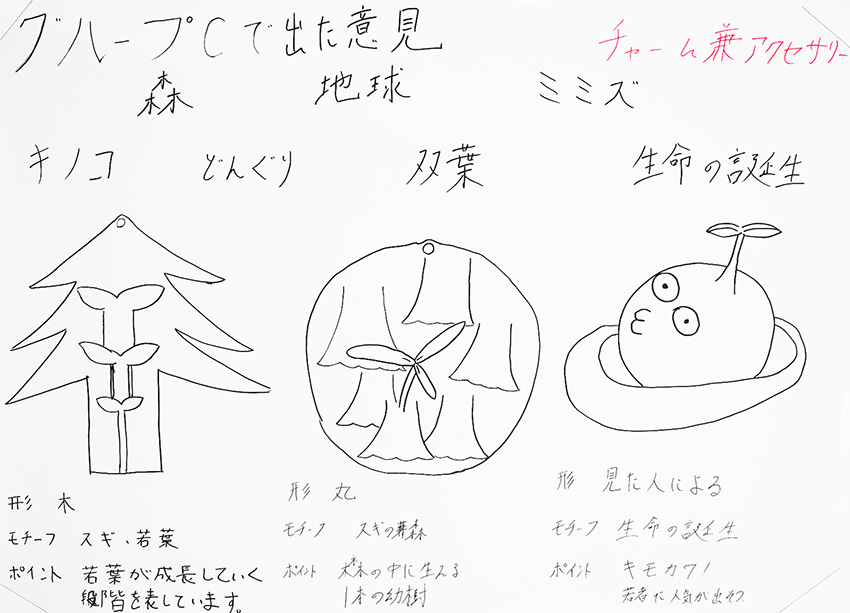 グループCで出た意見
チャーム兼アクセサリー
森 地球 ミミズ
キノコ どんぐり 双葉 生命の誕生
形 木
モチーフ スギ、若葉
ポイント 若葉が成長していく
階を表しています。
形 丸
モチーフ スギの森
ポイント 森の中に生える
1本の幼樹
形 見た人による
モチーフ 生命の誕生
ポイント キモカワ!
若者に人気が出そう